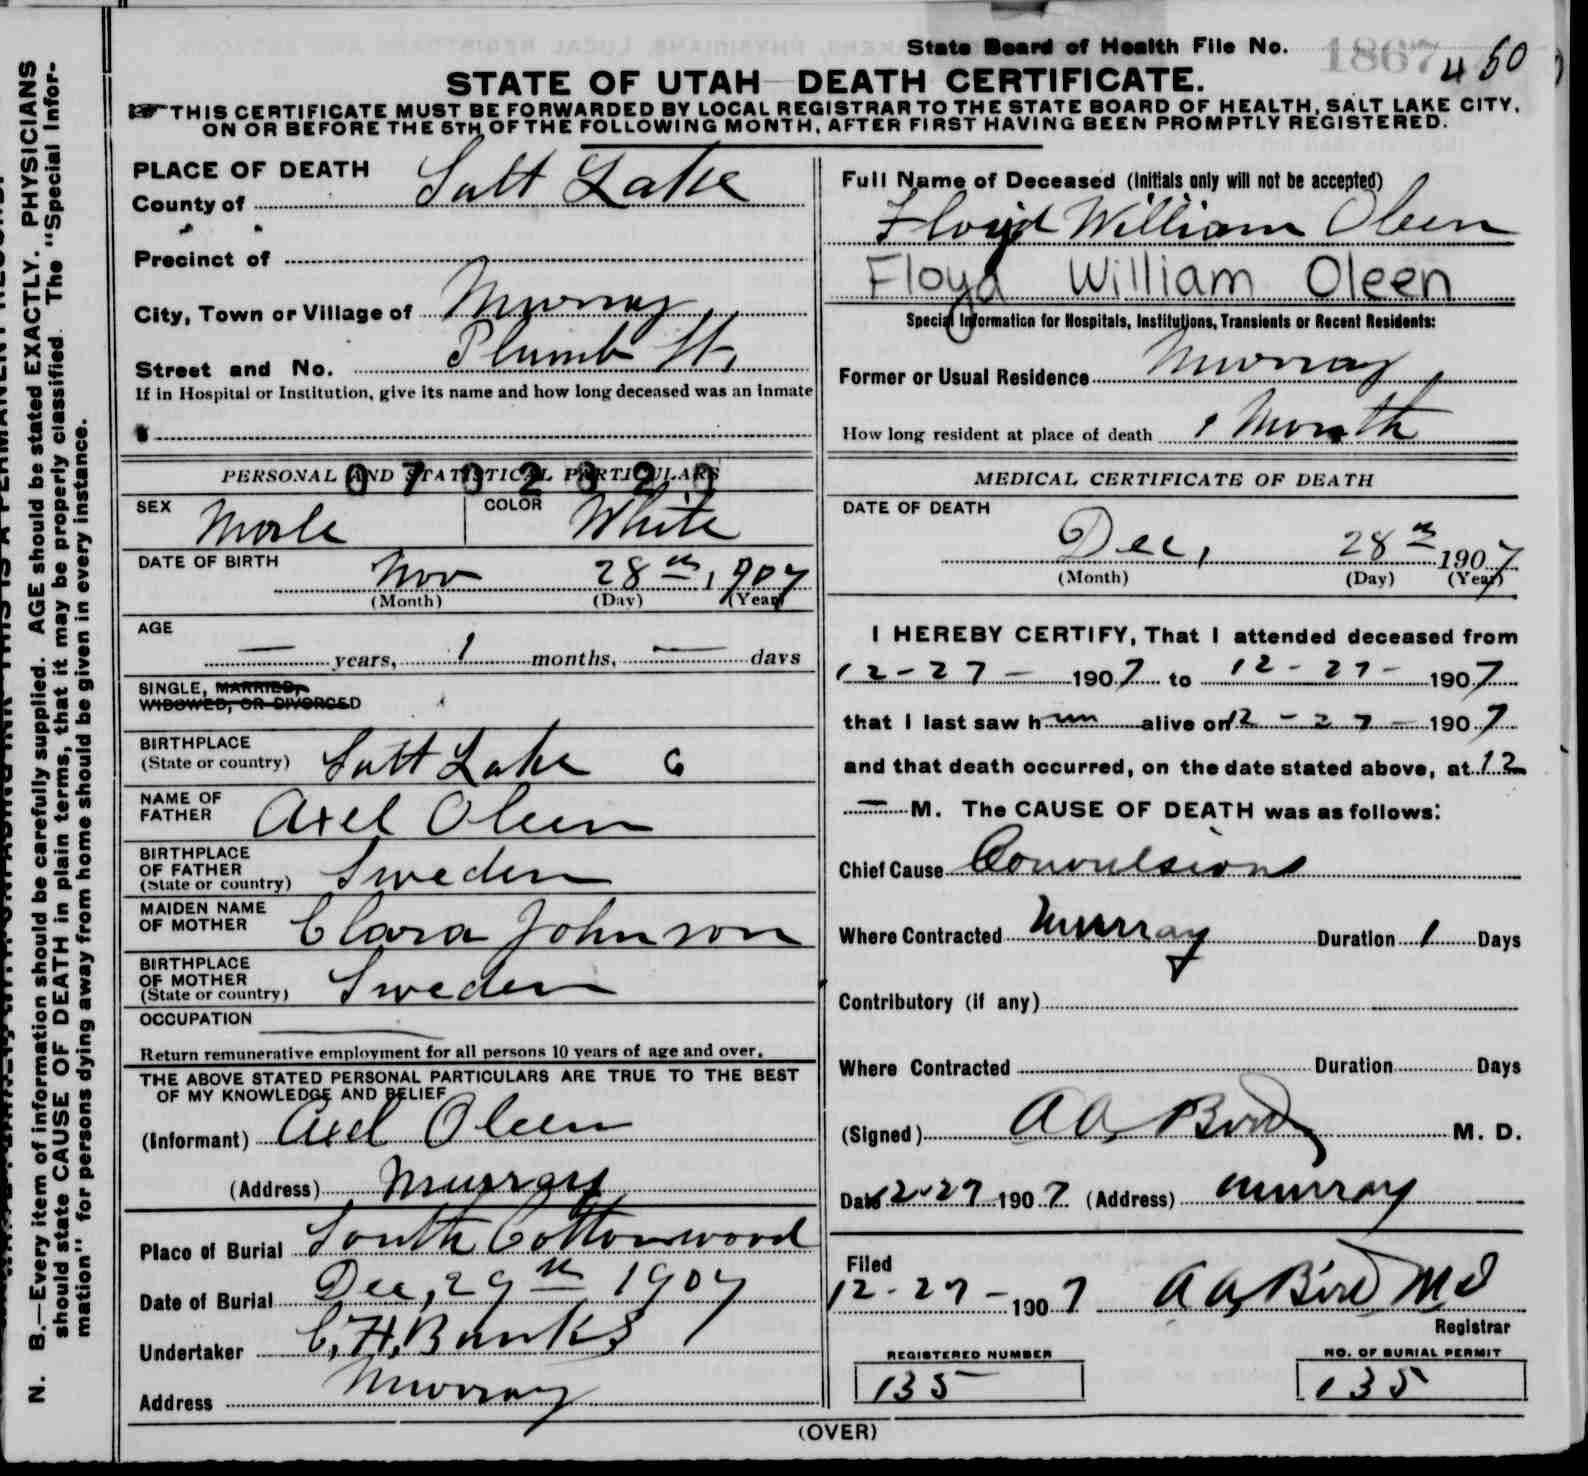 N. B.—Every item of information should be carefully supplied. AGE should be stated EXACTLY. PHYSICIANS
should state CAUSE OF DEATH in plain terms, that it may be properly classified. The "Special Infor-
mation" for persons dying away from home should be given in every instance.
State Board of Health File No. 1867 450
STATE OF UTAH—DEATH CERTIFICATE.
THIS CERTIFICATE MUST BE FORWARDED BY LOCAL REGISTRAR TO THE STATE BOARD OF HEALTH, SALT LAKE CITY,
ON OR BEFORE THE 5TH OF THE FOLLOWING MONTH, AFTER FIRST HAVING BEEN PROMPTLY REGISTERED.
PLACE OF DEATH
County of Salt Lake
Precinct of
City, Town or Village of Murray
Street and No. Plumb St,
If in Hospital or Institution, give its name and how long deceased was an inmate
PERSONAL AND STATISTICAL PARTICULARS
SEX Male COLOR White
DATE OF BIRTH Nov 28th, 1907
(Month) (Day) (Year)
AGE
— years, 1 months, — days
SINGLE, MARRIED,
WIDOWED, OR DIVORCED
BIRTHPLACE
(State or country) Salt Lake Co
NAME OF
FATHER Axel Oleen
BIRTHPLACE
OF FATHER
(State or country) Sweden
MAIDEN NAME
OF MOTHER Clara Johnson
BIRTHPLACE
OF MOTHER
(State or country) Sweden
OCCUPATION
Return remunerative employment for all persons 10 years of age and over.
THE ABOVE STATED PERSONAL PARTICULARS ARE TRUE TO THE BEST
OF MY KNOWLEDGE AND BELIEF
(Informant) Axel Oleen
(Address) Murray
Place of Burial South Cottonwood
Date of Burial Dec, 29th 1907
Undertaker C, H, Banks
Address Murray
Full Name of Deceased (Initials only will not be accepted)
Floyd William Oleen
Floyd William Oleen
Special Information for Hospitals, Institutions, Transients or Recent Residents:
Former or Usual Residence Murray
How long resident at place of death 1 Month
MEDICAL CERTIFICATE OF DEATH
DATE OF DEATH
Dec, 28th 1907
(Month) (Day) (Year)
I HEREBY CERTIFY, That I attended deceased from
12-27- 1907 to 12-27- 1907
that I last saw him alive on 12-27- 1907
and that death occurred, on the date stated above, at 12
— M. The CAUSE OF DEATH was as follows:
Chief Cause Convulsions
Where Contracted Murray Duration 1 Days
Contributory (if any)
Where Contracted Duration Days
(Signed) A A, Bird M. D.
Date 12-27 1907 (Address) Murray
Filed
12-27- 1907 A A, Bird MD
Registrar
REGISTERED NUMBER
135
NO. OF BURIAL PERMIT
135
(OVER)